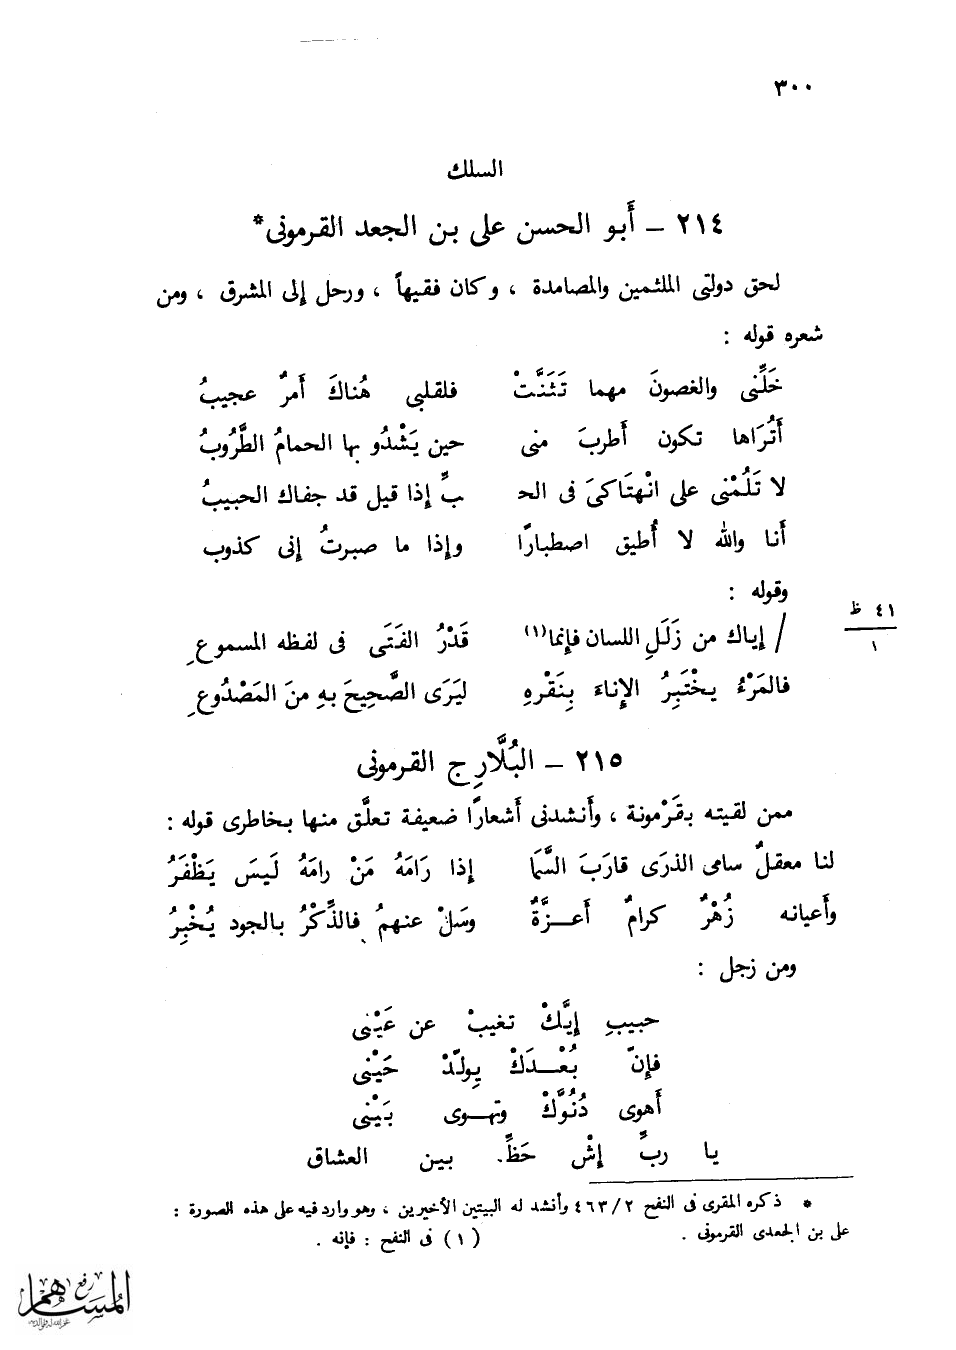 ٣٠٠
السلك
٢١٤ – أَبو الحسن على بن الجعد القرمونى*
لحق دولتى الملثمين والمصامدة ، وكان فقيهاً ، ورحل إلى المشرق ، ومن
شعره قوله :
خَلِّنى والغصونَ مهما تَثَنَّتْ فلقلبى هُناكَ أَمرٌ عجيبُ
أَتُرَاها تكون أَطربَ منى حين يَشْدُو بها الحمامُ الطَّرُوبُ
لا تَلُمْنى على انْهتَاكىَ فى الحـ ـبِّ إذا قيل قد جفاك الحبيبُ
أَنا والله لا أُطيق اصطبارًا وإذا ما صبرتُ إنى كذوب
وقوله :
٤١ ظ
١
/ إياك من زَلَلِ اللسان فإنما(١) قَدْرُ الفَتَى فى لفظه المسموعِ
فالمَرْءُ يخْتَبِرُ الإناءَ بِنَقْرهِ ليَرَى الصَّحِيحَ بهِ منَ المَصْدُوعِ
٢١٥ – البُلَّارِج القرمونى
ممن لقيته بقَرْمونة ، وأَنشدنى أَشعارًا ضعيفة تعلَّق منها بخاطرى قوله :
لنا معقلٌ سامى الذرَى قارَبَ السَّمَا إذا رَامَهُ مَنْ رامَهُ لَيسَ يَظْفَرُ
وأَعيانه زُهْرٌ كرامٌ أَعـــزَّةٌ وسَلْ عنهمُ فالذِّكْرُ بالجود يُخْبِرُ
ومن زجل :
حبيبِ إيَّكْ تغيبْ عن عَيْنى
فإنّ بُعْـــدَكْ يِولّدْ حَيْنى
أَهوى دُنُوَّكْ وتهــوى بَيْنى
يا ربِّ إشْ حَظِّ. بين العشاق
* ذكره المقرى فى النفح ٤٦٣/٢ وأنشد له البيتين الأخيرين ، وهو وارد فيه على هذه الصورة :
على بن الجعدى القرمونى . (١) فى النفح : فإنه .
رفع
المساهم